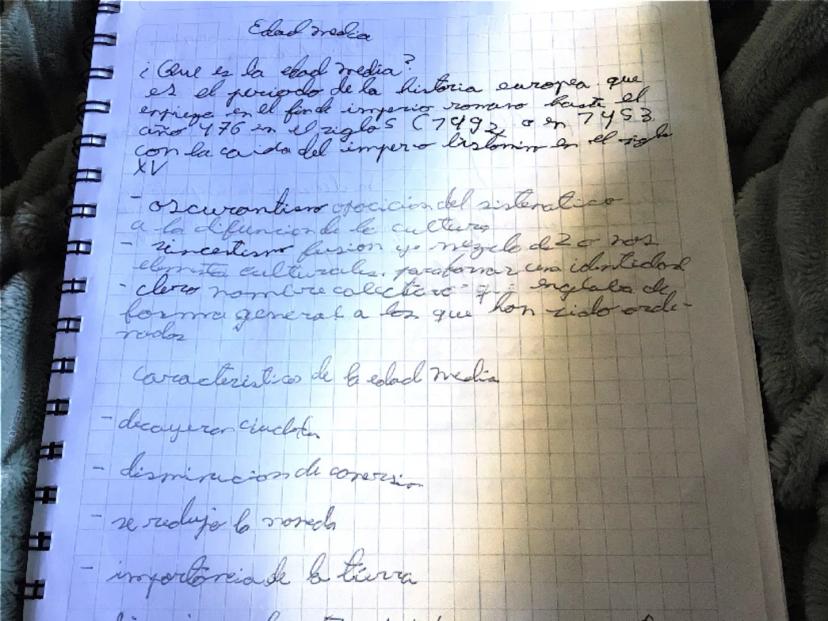 Edad media
¿Que es la edad media?
es el periodo de la historia europea que
empieza en el fin del imperio romano hasta el
año 476 en el siglo 5 (1492, o en 1453
con la caida del imperio en el siglo
XV
- oscurantismo oposicion del sistematico
a la difuncion de la cultura
- sincretismo fusion y mezcla de 2 o mas
culturales, para formar una identidad
- clero nombre colectivo q englaba de
forma general a los que han sido orde-
nados
Caracteristicas de la edad media
- decayeron
- disminucion de
- se redujo la moneda
- importancia de la tierra